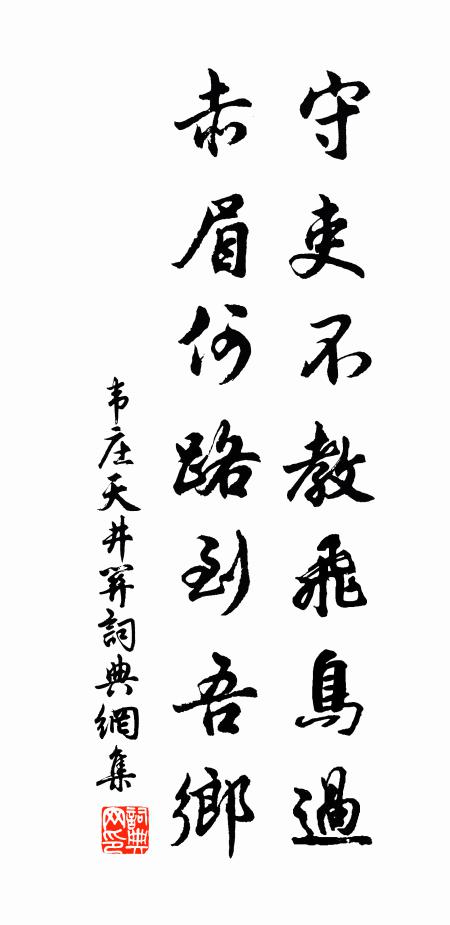 守吏不教飛鳥過
赤眉何路到吾鄉
韦庄天井関詞典網集
詞典网印